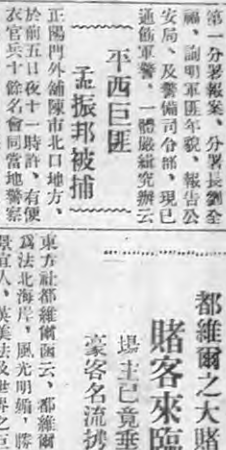 第一分署報案、分署長劉全
福、詢明軍匪年貌、報告公
安局、及警備司令部、現已
通飭軍警、一體嚴緝究辦云
平西巨匪
孟振邦被捕
正陽門外舖陳市北口地方、
於前五日夜十一時許、有便
衣官兵十餘名會同當地警察
都維爾之大賭
賭客來臨
場主已竟垂
豪客名流揮
東方社都維爾函云、都維爾
爲法北海岸、風光明媚、勝
景宜人、英美法及世界之巨